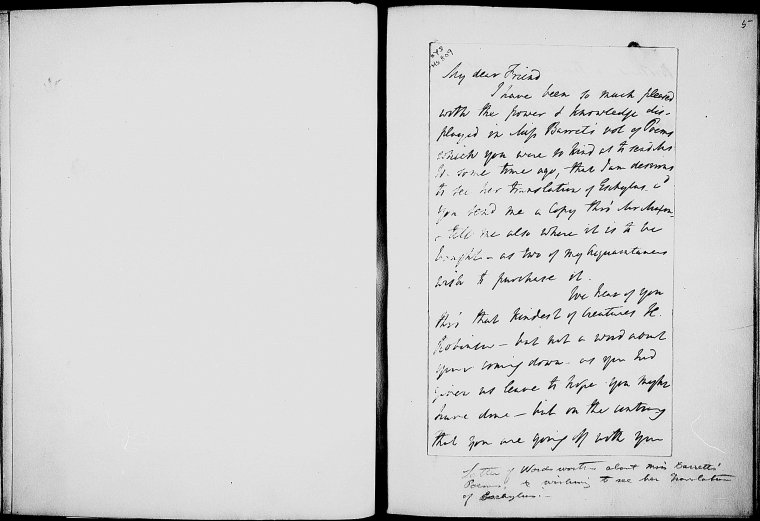 5
My dear Friend
I have been so much pleased
with the power & knowledge dis-
played in Miss Barrett's vol of Poems
which you were so kind as to send us
some time ago, that I am desirous
to see her translation of Eschylus. cd
you send me a Copy thro' Mr Moxon
- tell me also where it is to be
bought - as two of my Acquaintances
wish to purchase it.
We hear of you
thro' that kindest of Creatures H.
Robinson - but not a word about
your coming down - as you had
given us leave to hope you might
have done - but on the contrary
that you are going off with your
Letter of Wordsworth - about Miss Barrett's
Poems & wishing to see her Translation
of Eschylus. -